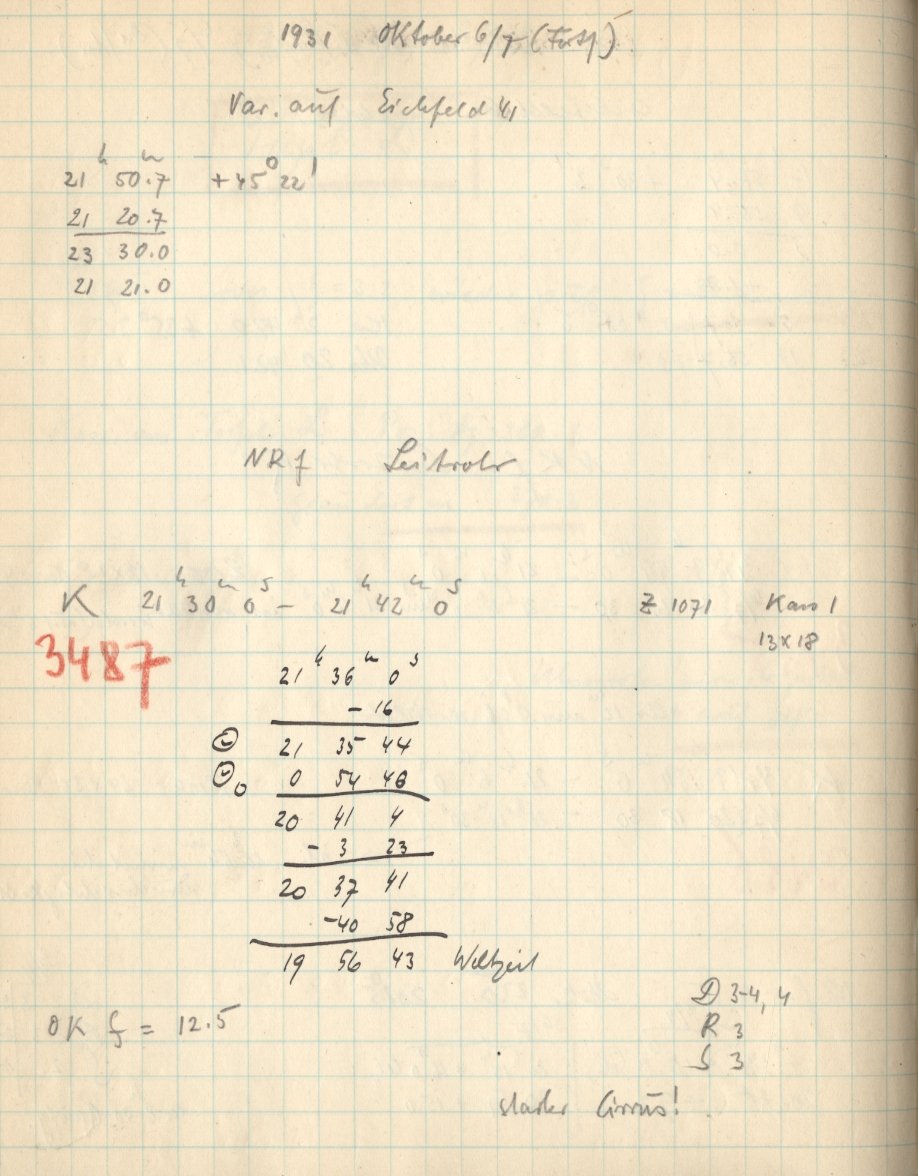 1931 Oktober 6/7 (Forts.)
Var. auf Eichfeld 41
21ʰ 50ᵐ.7 +45° 22'
21 20.7
23 30.0
21 21.0
NR f Leitrohr
K 21ʰ 30ᵐ 0ˢ – 21ʰ 42ᵐ 0ˢ Z 1071 Kass 1
13x18
3487
21ʰ 36ᵐ 0ˢ
- 16
Θ 21 35 44
Θ₀ 0 54 40
20 41 4
- 3 23
20 37 41
-40 58
19 56 43 Weltzeit
D 3-4, 4
OK f = 12.5
R 3
S 3
starker Cirrus!